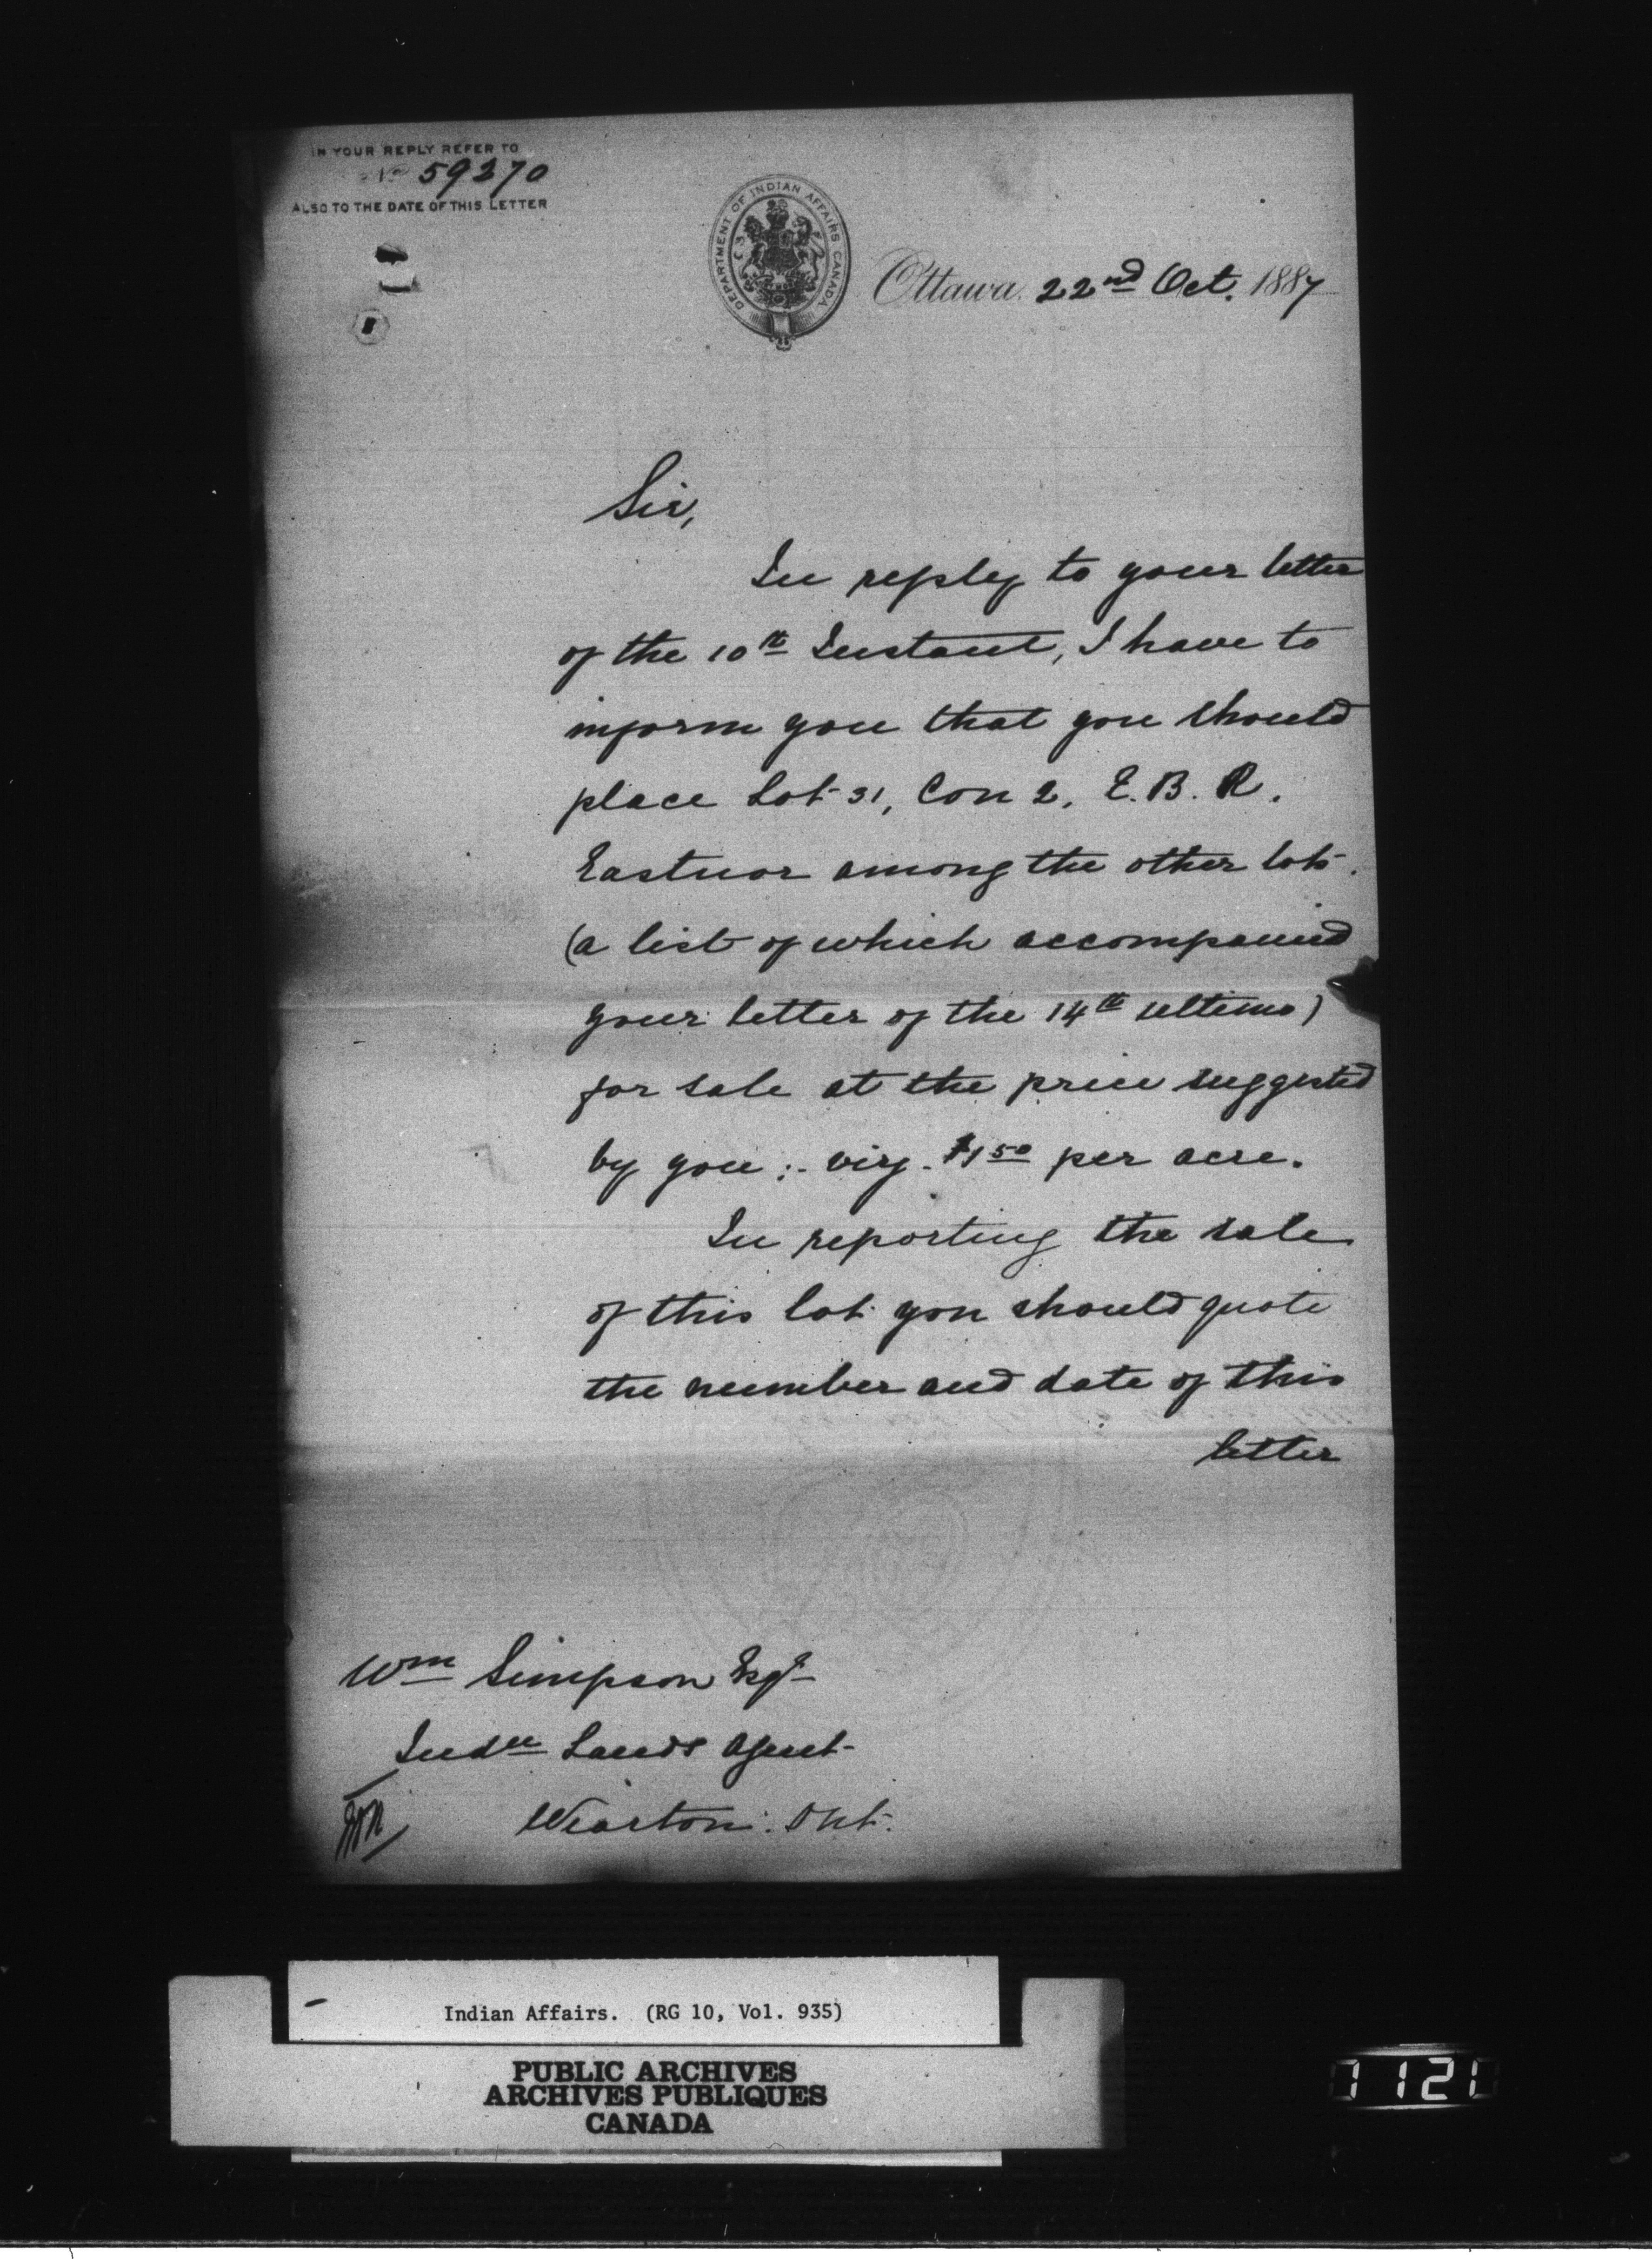 IN YOUR REPLY REFER TO
No 59270
ALSO TO THE DATE OF THIS LETTER
DEPARTMENT OF INDIAN AFFAIRS CANADA
Ottawa. 22nd Oct. 1887
Sir,
In reply to your letter
of the 10th Instant, I have to
inform you that you should
place Lot 31, Con 2, E.B.R.
Eastnor among the other lots
(a list of which accompanied
your letter of the 14th ultimo)
for sale at the price suggested
by you:- viz. $1 50 per acre.
In reporting the sale
of this lot you should quote
the number and date of this
letter
Wm Simpson Esqr
Indn Lands Agent
Wiarton. Ont.
Indian Affairs. (RG 10, Vol. 935)
PUBLIC ARCHIVES
ARCHIVES PUBLIQUES
CANADA
1121